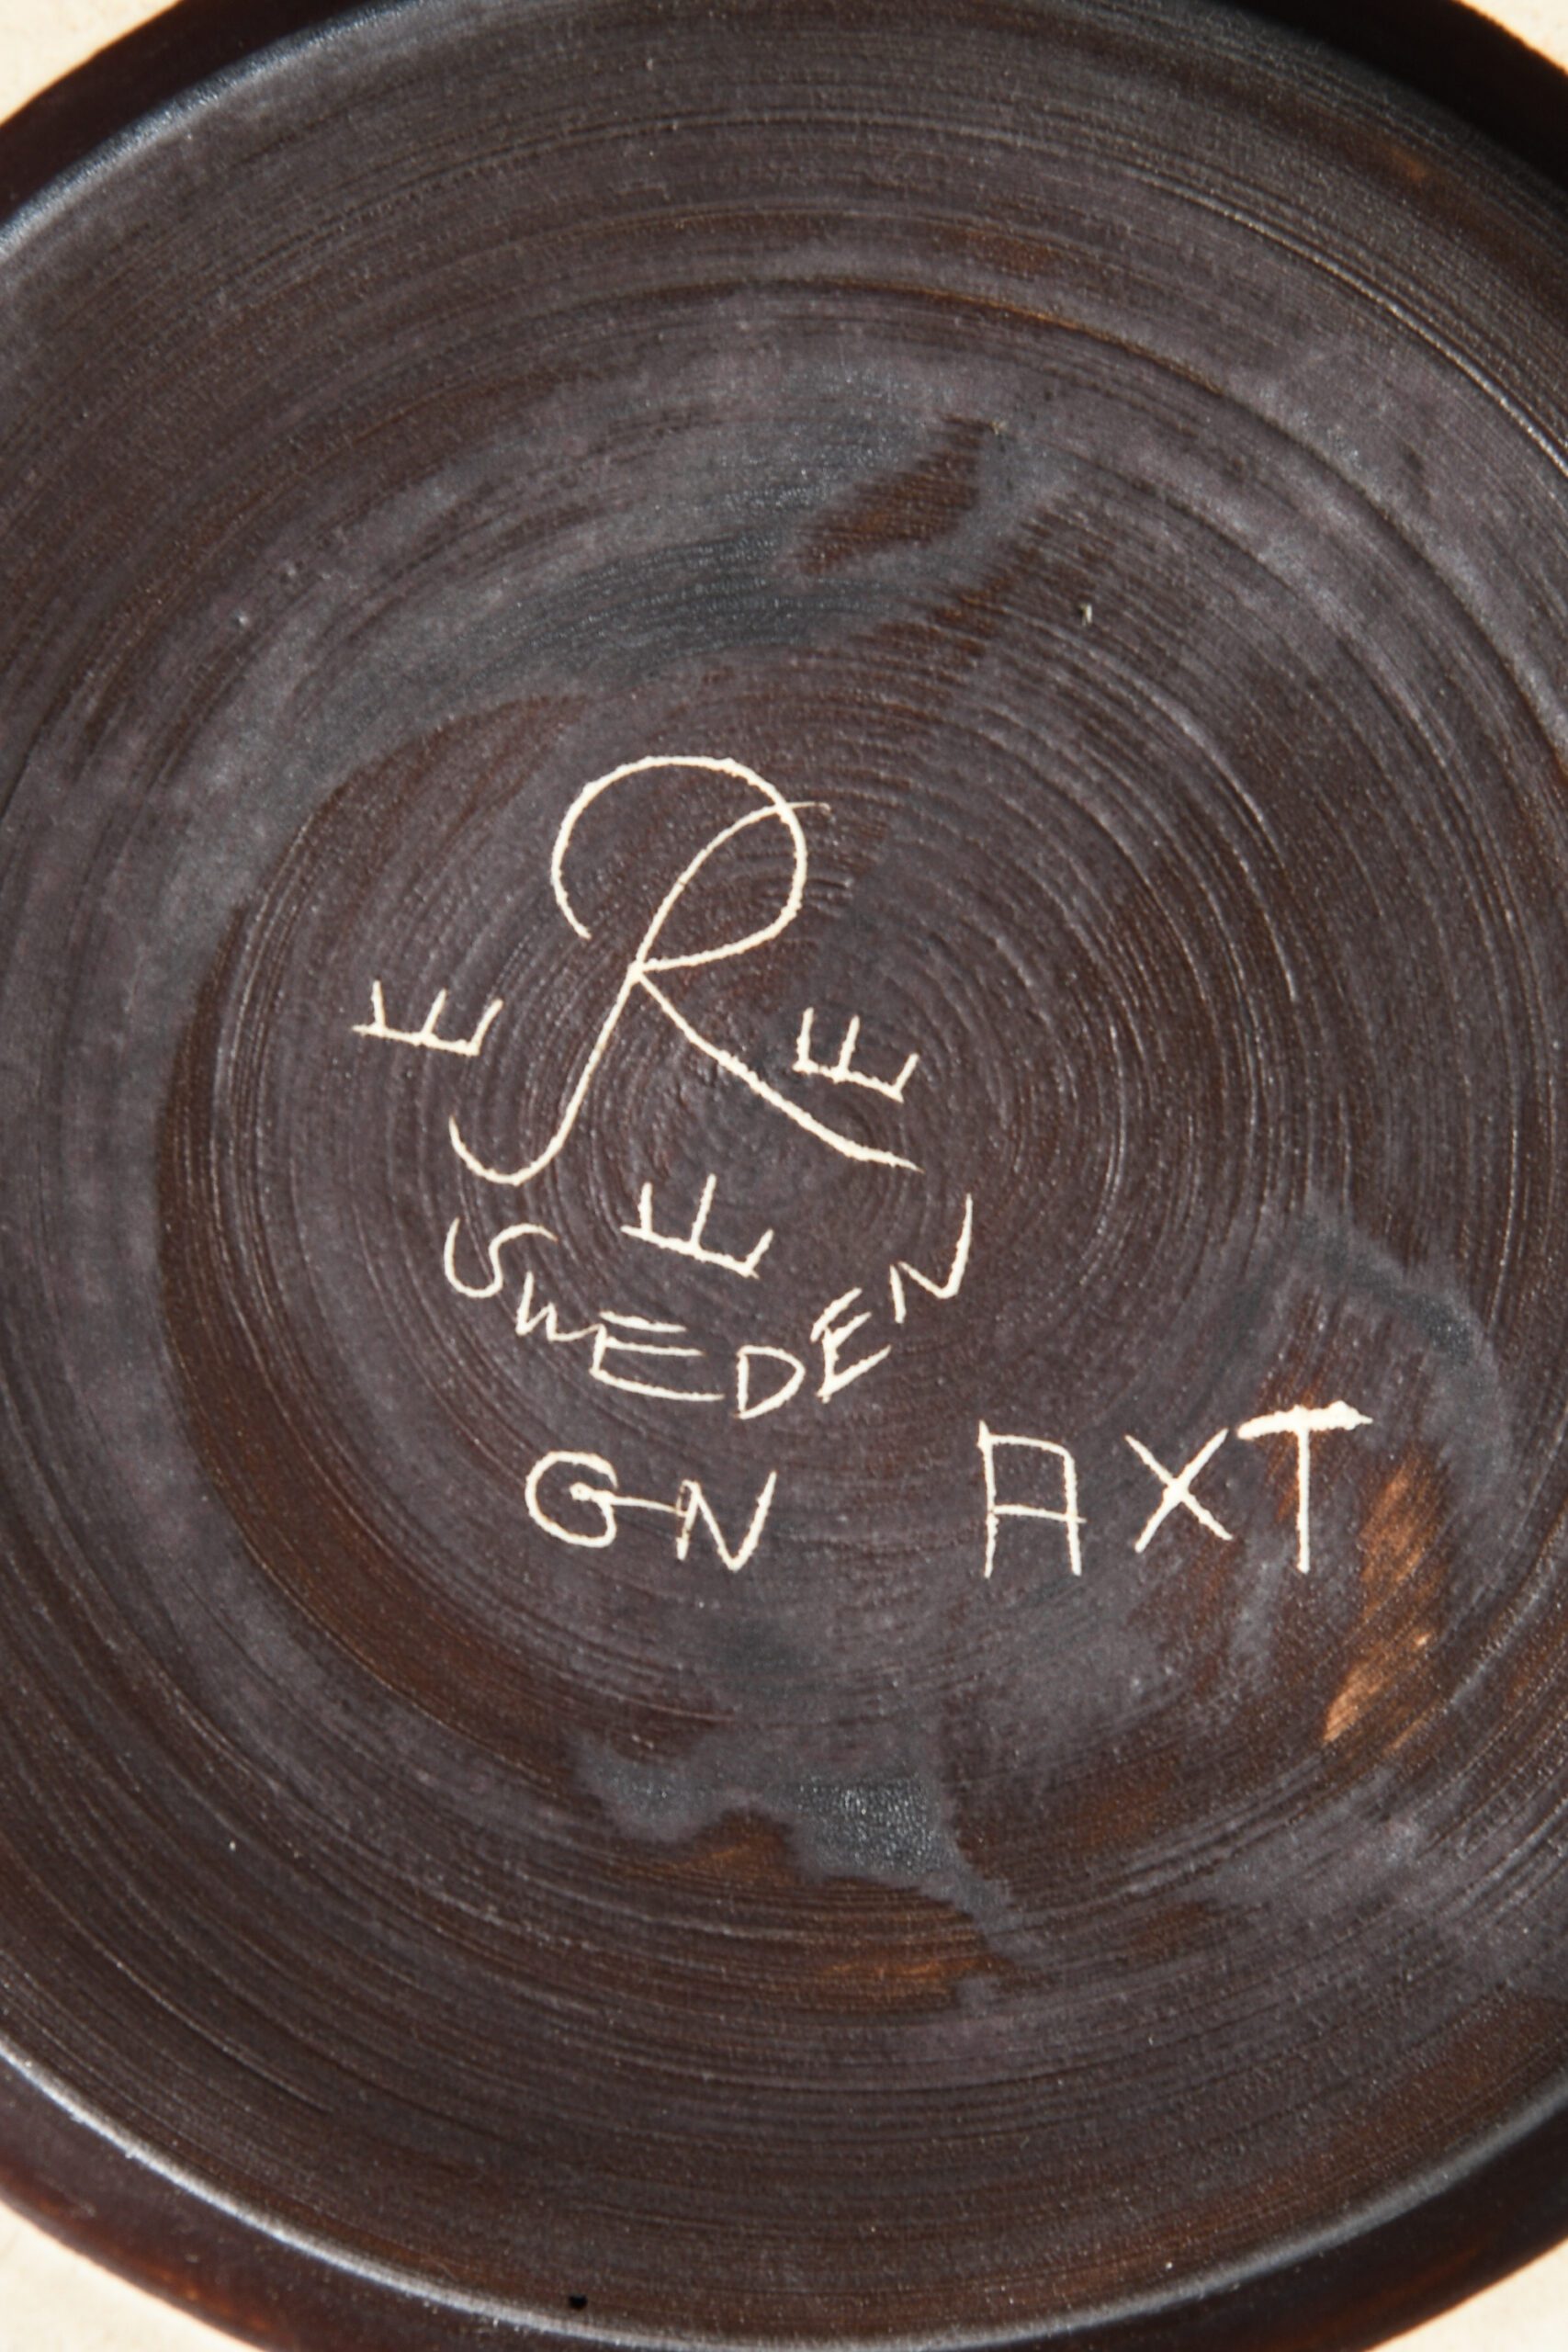 R
SWEDEN
GN AXT